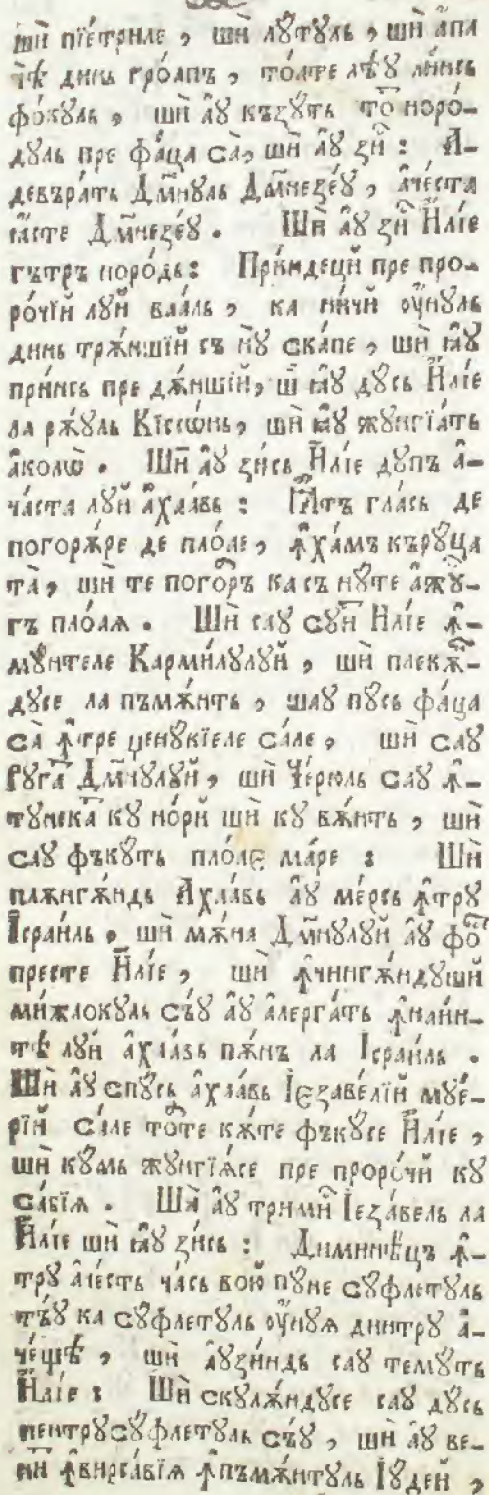 шѝ пїетриле , шѝ лꙋ́тꙋль , шѝ а҆́па
чѣ́ динь гро́апъ , то́ате лѣ́ꙋ ли́нсь
фо́кꙋль , шѝ а҆́ꙋ къзꙋ́ть то́т норо́-
дꙋль пре фа́ца са̀, шѝ а҆́ꙋ зи́с : А҆-
девъра́ть Дм҃нꙋль Дм҃незе́ꙋ , а҆че́ста
ꙗ҆́сте Дм҃незе́ꙋ . Шѝ а҆́ꙋ зи́с И҆лі́е
гътръ норо́дь : При́ндецїй пре про-
ро́чїй лꙋ́й ваа́ль , ка ни́чй оу҆́нꙋль
динь трѫ́ншїй съ нꙋ̀ ска́пе , шѝ ꙗ҆́ꙋ
при́нсь пре дѫ́ншїй, шѝ ꙗ҆́ꙋ дꙋ́сь И҆лі́е
ла рѫ́ꙋль Кїссѡ́нь , шѝ ꙗ҆́ꙋ жꙋнгїа́ть
а҆коло̀ . Шѝ а҆́ꙋ зи́сь И҆лі́е дꙋпъ а҆-
ча́ста лꙋ́й а҆хаа́вь : І҆а́тъ гла́сь де
погорѫ́ре де пло́ае , ꙟ҆ха́мъ кърꙋ́ца
та̀ , шѝ те погоа́ръ ка съ нꙋ́те а҆жꙋ́н-
гъ пло́аꙗ . Шѝ са́ꙋ сꙋи́т И҆лі́е ꙟ҆-
мꙋ́нтеле Карми́лꙋлꙋй , шѝ плекѫ́н-
дꙋсе ла пъмѫ́нть , ша́ꙋ пꙋ́сь фа́ца
са̀ ꙟ҆тре џенꙋ́кїеле са́ле , шѝ са́ꙋ
рꙋга́т Дм҃нꙋлꙋй , шѝ Че́рюль са́ꙋ ꙟ҆-
тꙋнека́т кꙋ но́рй шѝ кꙋ вѫ́нть , шѝ
са́ꙋ фъкꙋ́ть пло́ае ма́ре : Шѝ
плѫнгѫ́ндь А҆хаа́вь а҆́ꙋ ме́рсь ꙟ҆трꙋ
І҆сраи́ль , шѝ мѫ́на Дм҃нꙋлꙋй а҆́ꙋ фо́ст
престе И҆лі́е , шѝ ꙟ҆чингѫ́ндꙋшй
мижлокꙋль съ́ꙋ а҆́ꙋ а҆лерга́ть ꙟ҆наин-
тѣ лꙋ́й а҆хаа́вь пѫ́нъ ла І҆сраи́ль .
Шѝ а҆́ꙋ спꙋ́сь а҆хаа́вь І҆езаве́лїй мꙋе́-
рїй са́ле то́те кѫ́те фъкꙋ́се И҆лі́е ,
шѝ кꙋ́мь жꙋнгїа́се пре проро́чй кꙋ
са́бїꙗ . Шѝ а҆́ꙋ трими́с І҆еза́вель ла
И҆лі́е шѝ ꙗ҆́ꙋ зи́сь : Диминѣ́цъ ꙟ҆-
трꙋ а҆че́сть ча́сь вою̀ пꙋ́не сꙋ́флетꙋль
тъ́ꙋ ка сꙋ́флетꙋль оу҆́нꙋꙗ динтрꙋ а҆-
че́щѣ , шѝ а҆ꙋзи́ндь са́ꙋ темꙋ́ть
И҆лі́е : Шѝ скꙋлѫ́ндꙋсе са́ꙋ дꙋ́сь
пентрꙋ сꙋ́флетꙋль съ́ꙋ , шѝ а҆́ꙋ ве-
ни́т ꙟ҆вирсави́ꙗ ꙟ҆пъмѫ́нтꙋль І҆ꙋде́й ,